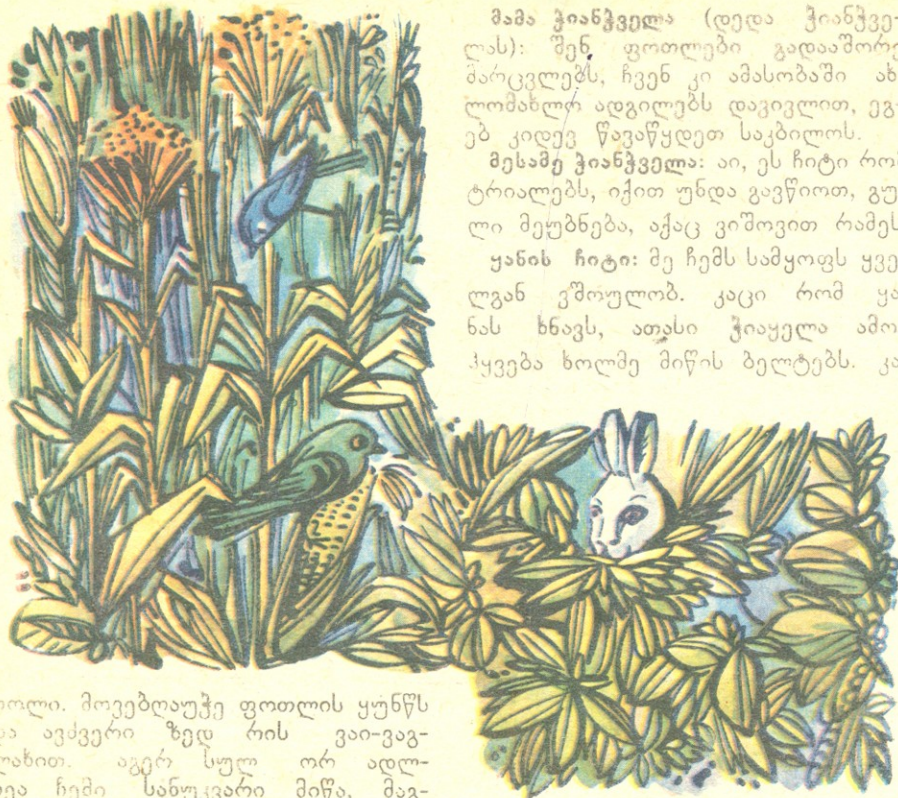 მამა ჭიანჭველა (დედა ჭიანჭვე-
ლას): შენ ფოთლები გადააშორე
მარცვლებს, ჩვენ კი ამასობაში ახ-
ლომახლო ადგილებს დავივლით, ეგ-
ებ კიდევ წავაწყდეთ საკბილოს.
მესამე ჭიანჭველა: აი, ეს ჩიტი რომ
ტრიალებს, იქით უნდა გავწიოთ, გუ-
ლი მეუბნება, აქაც ვიშოვით რამეს
ყანის ჩიტი: მე ჩემს სამყოფს ყვე
ლგან ვშოულობ. კაცი რომ ყა
ნას ხნავს, ათასი ჭიაყელა ამო
ჰყვება ხოლმე მიწის ბელტებს. კა
ოლი. მოვებღაუჭე ფოთლის ყუნწს
და ავძვერი ზედ რის ვაი-ვაგ-
ლახით. აგერ სულ ორ ადლ-
ჩემი სანუკვარი მიწა, მაგ-